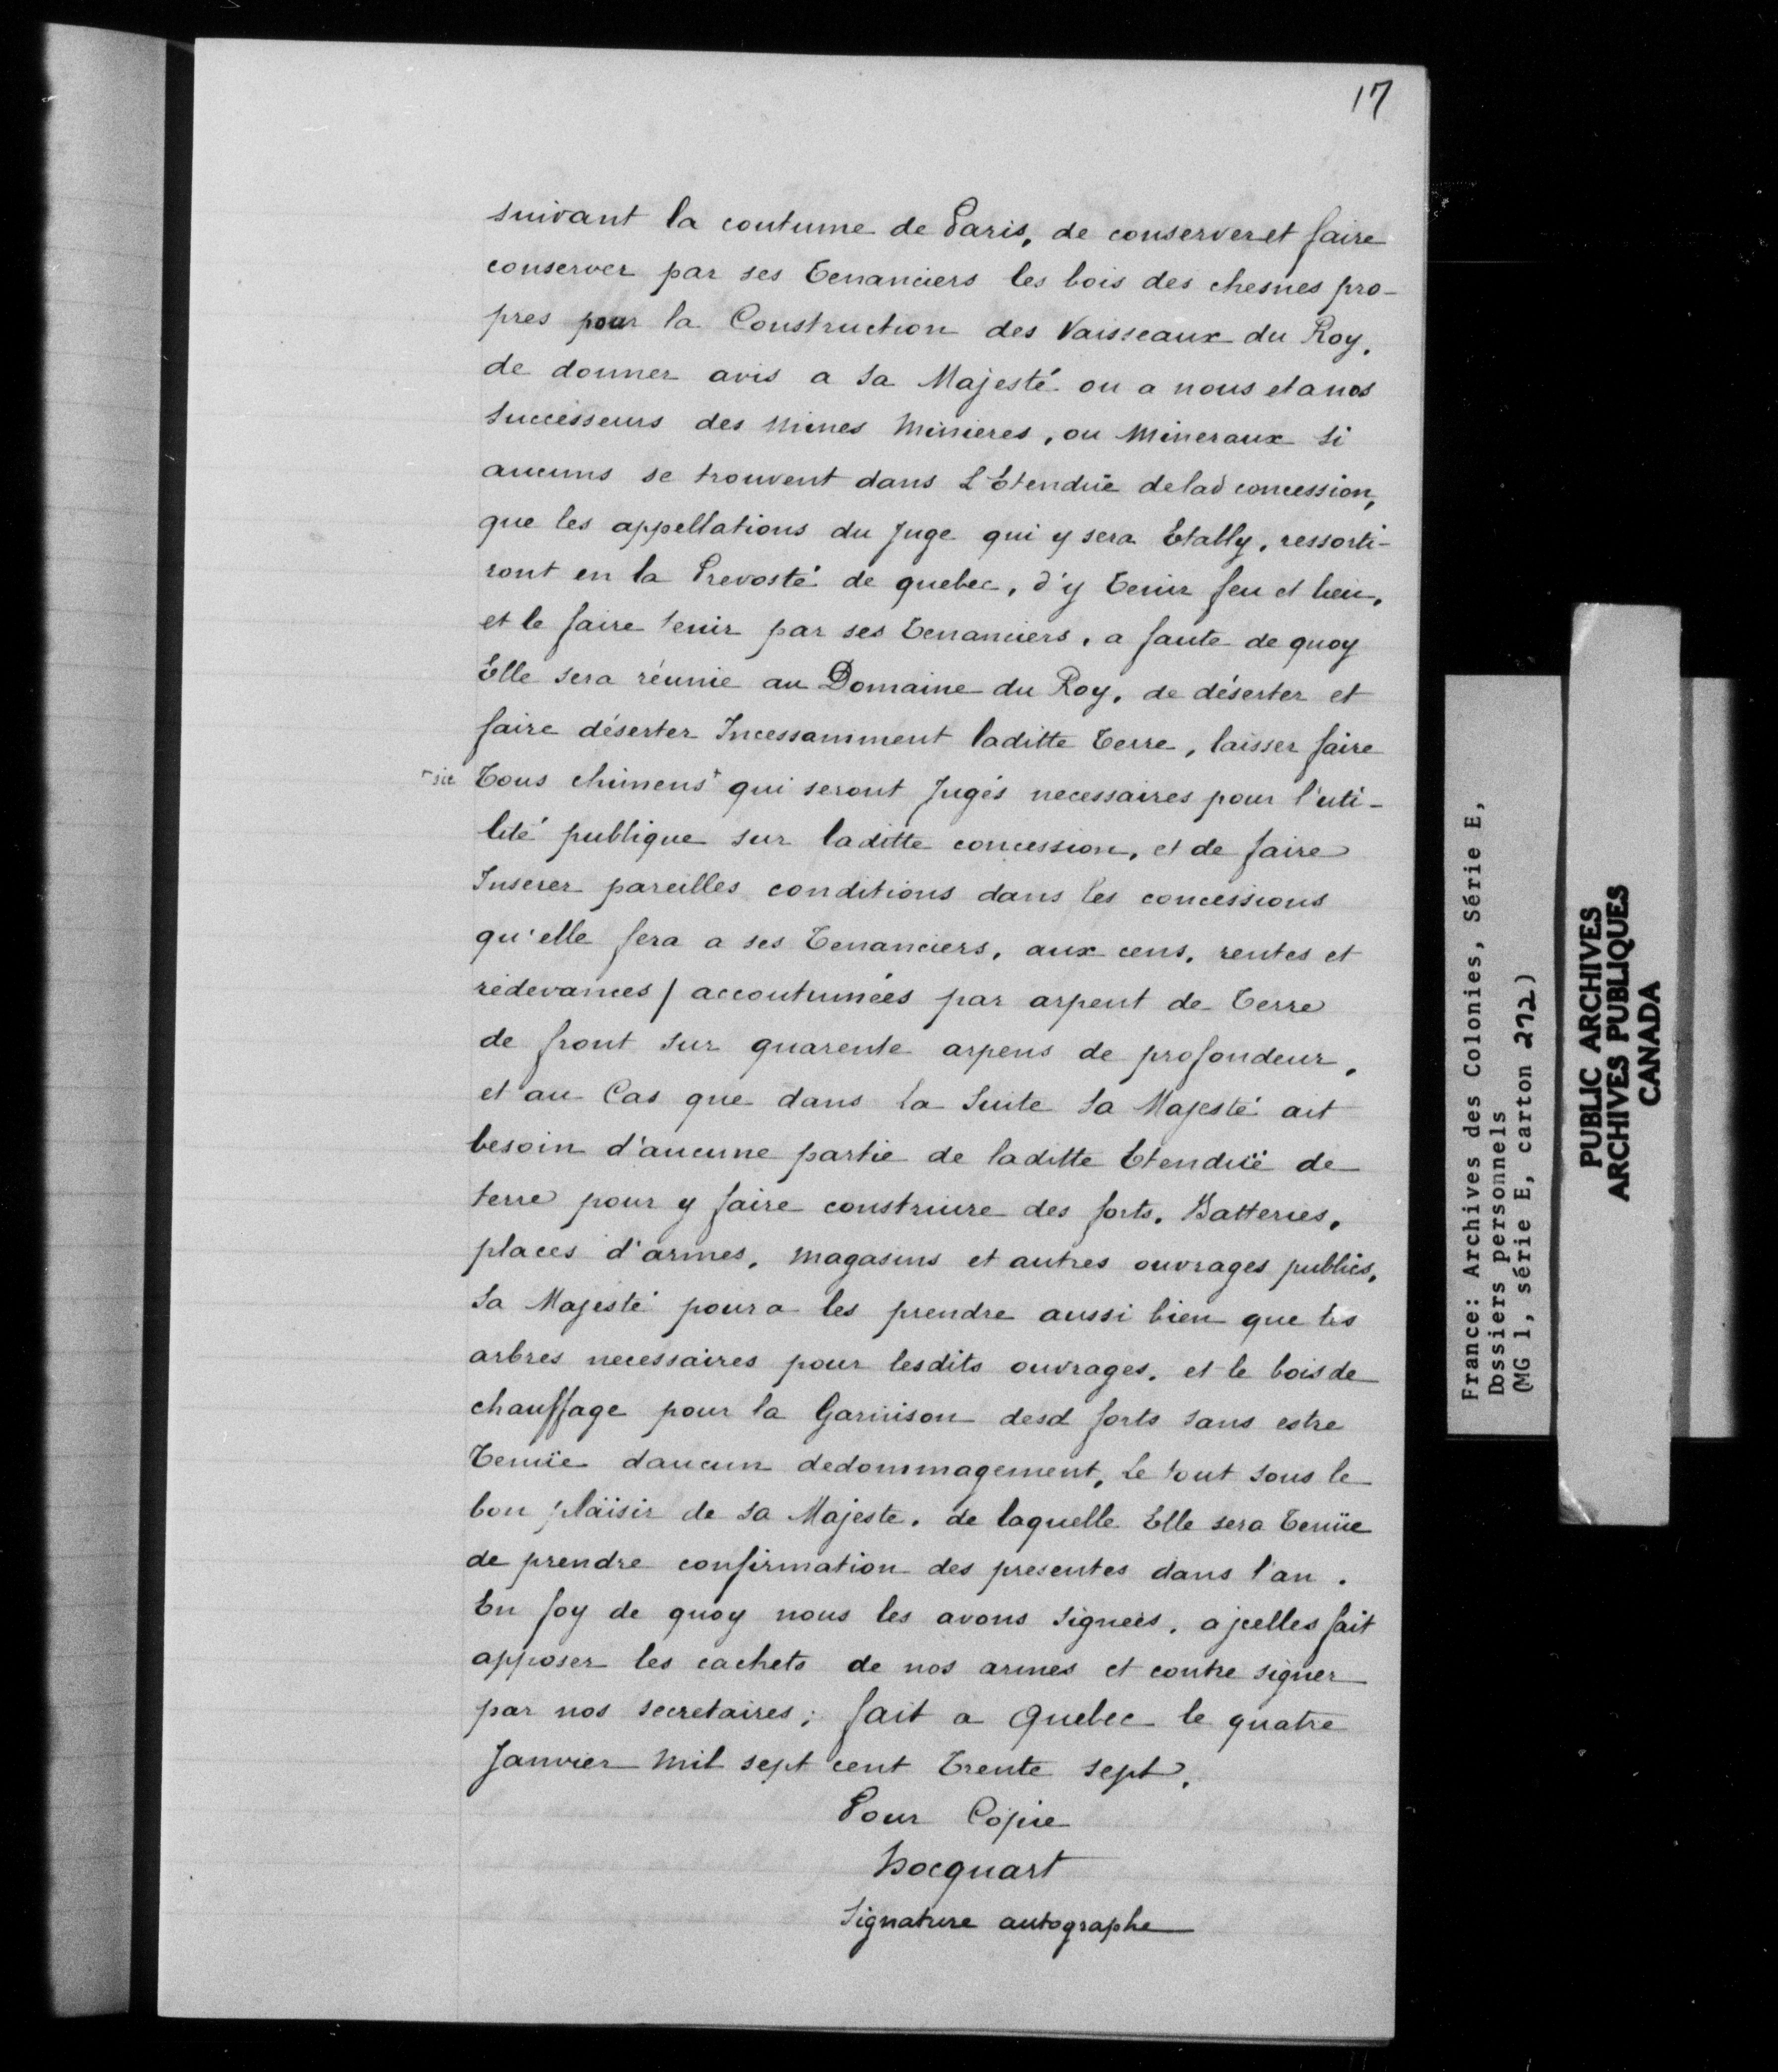 17
suivant la coutume de Paris, de conserver et faire
conserver par ses Tenanciers les bois des chesnes pro-
pres pour la Construction des Vaisseaux du Roy,
de donner avis a sa Majesté ou a nous et a nos
successeurs des Mines Minieres, ou Mineraux si
aucuns se trouvent dans L'Etendüe de lad concession,
que les appellations du Juge qui y sera Etably, ressorti-
ront en la Prevosté de quebec, d'y Tenir feu et lieu,
et le faire tenir par ses Tenanciers, a faute de quoy
Elle sera réunie au Domaine du Roy, de déserter et
faire déserter Incessamment laditte Terre, laisser faire
+sic Tous chimens+ qui seront Jugés necessaires pour l'uti-
lité publique sur laditte concession, et de faire
Inserer pareilles conditions dans les concessions
qu'elle fera a ses Tenanciers, aux cens, rentes et
redevances / accoutumées par arpent de Terre
de front sur quarente arpens de profondeur,
et au Cas que dans la Suite Sa Majesté ait
besoin d'aucune partie de laditte Etendüe de
terre pour y faire construire des forts, Batteries,
places d'armes, magasins et autres ouvrages publics,
Sa Majesté poura les prendre aussi bien que les
arbres necessaires pour lesdits ouvrages, et le bois de
chauffage pour la Garnison desd forts sans estre
Tenüe daucun dedommagement, Le tout sous le
bon plaisir de Sa Majeste, de laquelle Elle sera Tenüe
de prendre confirmation des presentes dans l'an.
En foy de quoy nous les avons signées, a jcelles fait
apposer les cachets de nos armes et contre signer
par nos secretaires; fait a Quebec le quatre
Janvier Mil sept cent Trente sept,
Pour Copie
hocquart
Signature autographe
France: Archives des Colonies, Série E,
Dossiers personnels
(MG 1, série E, carton 272)
PUBLIC ARCHIVES
ARCHIVES PUBLIQUES
CANADA